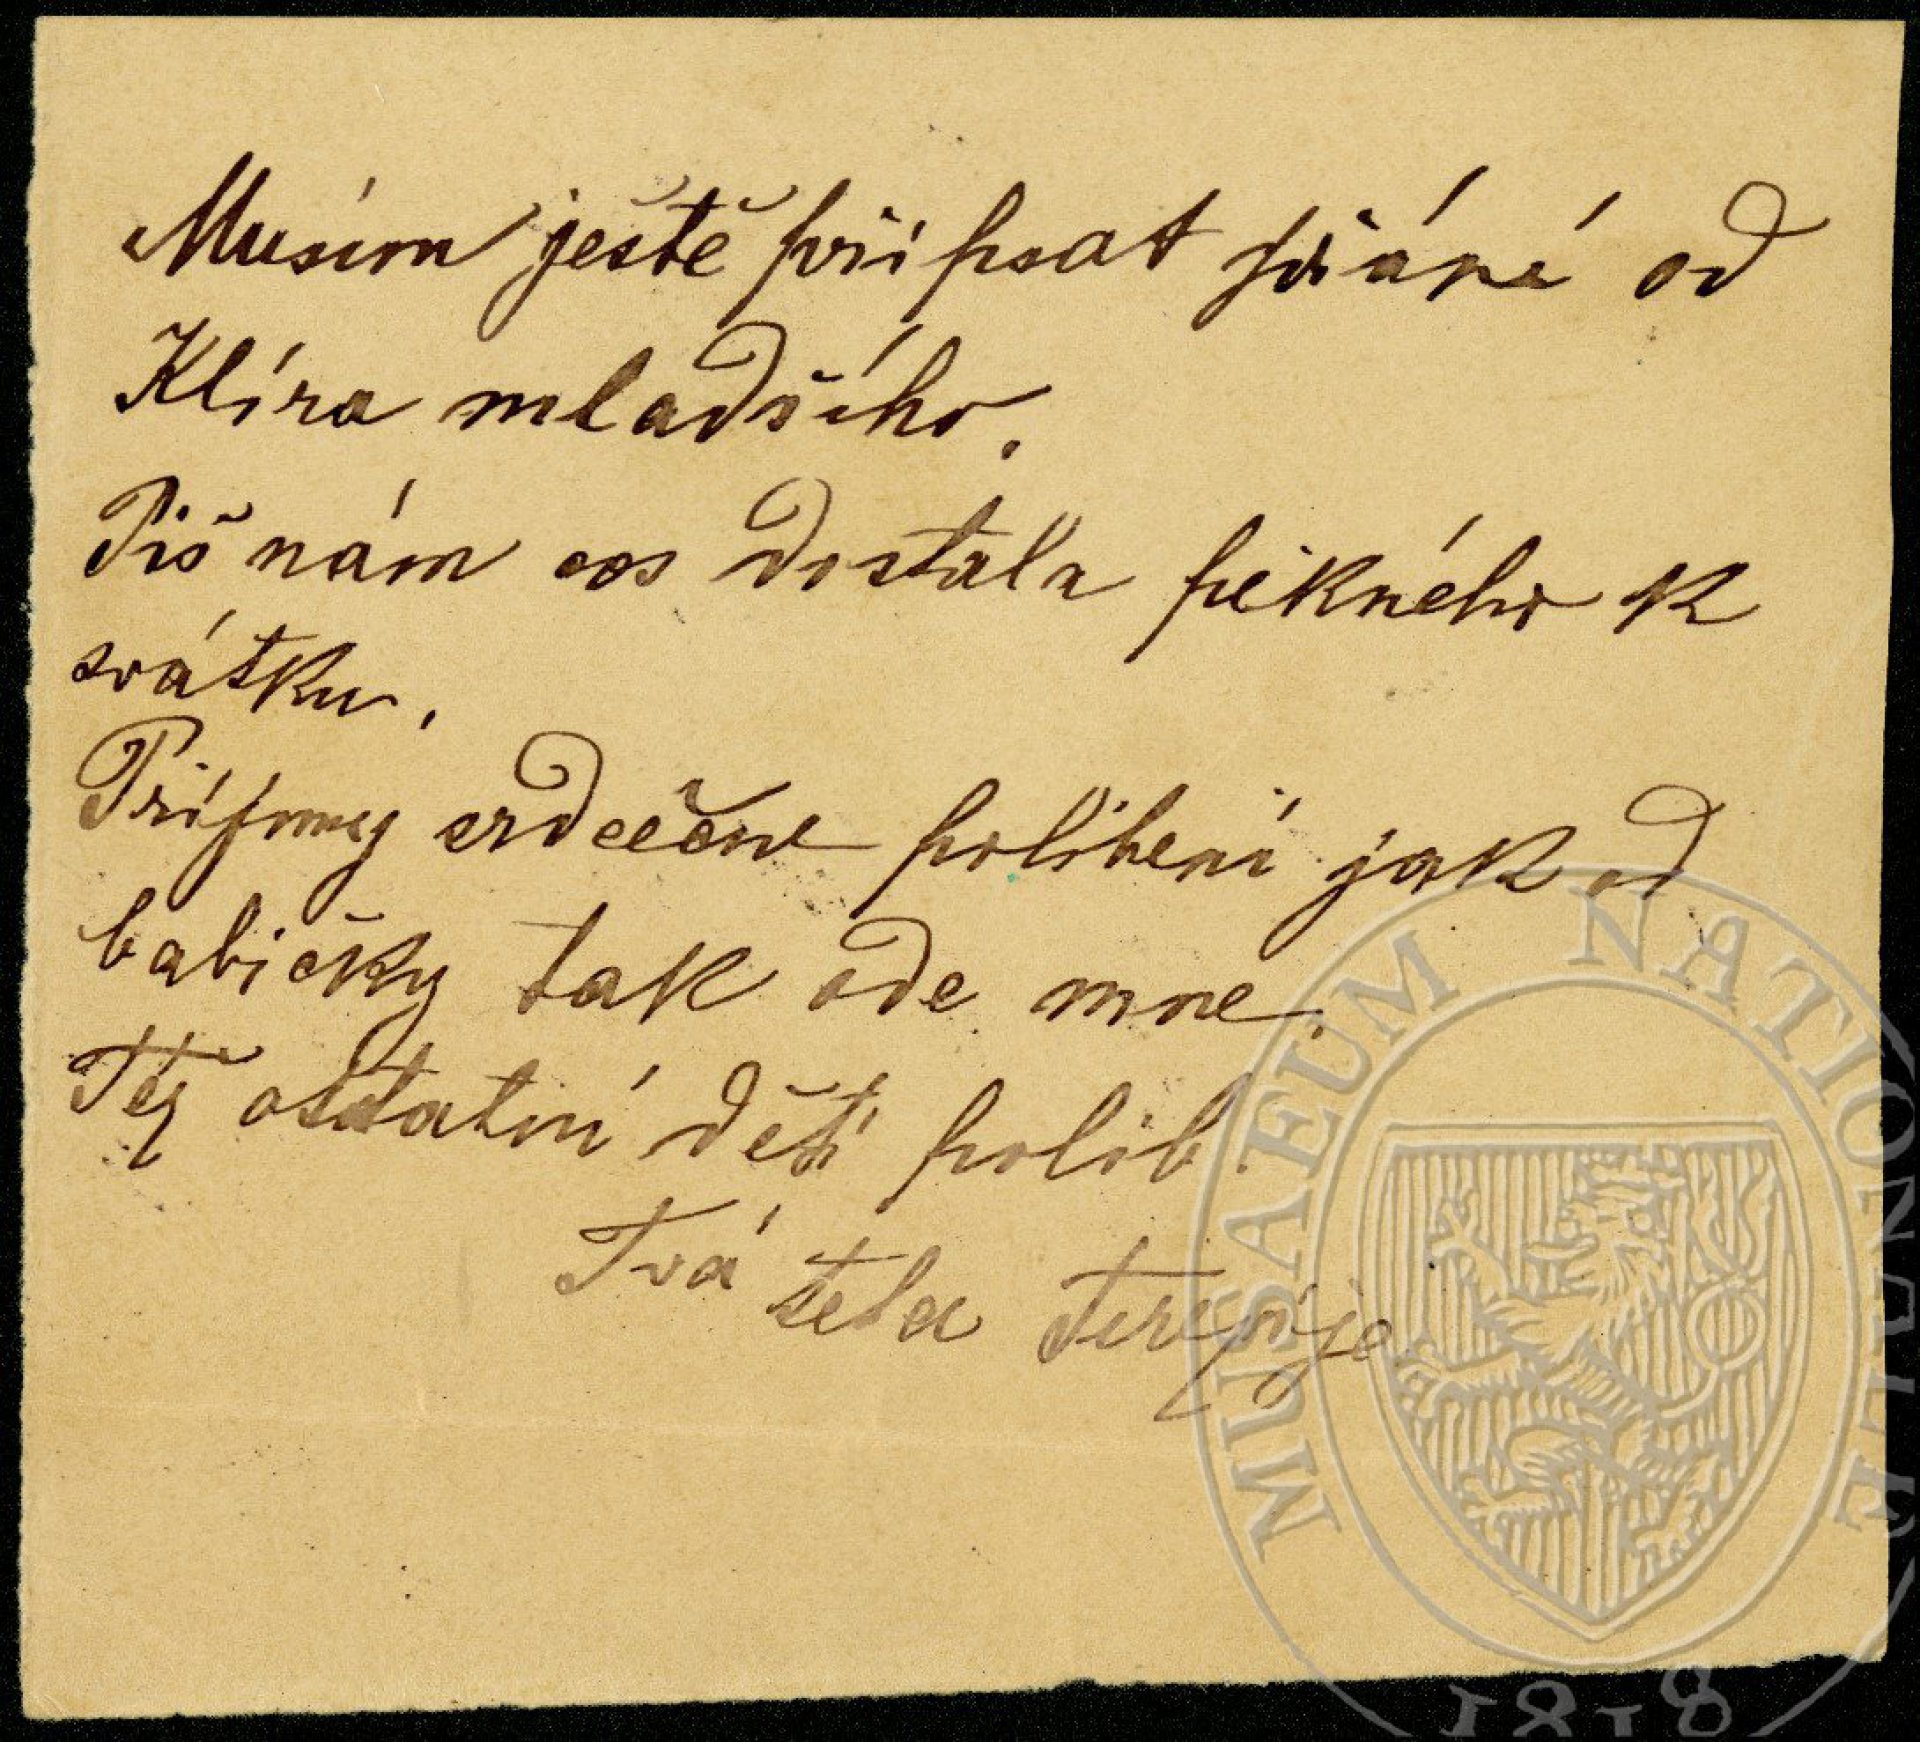 Musím ještě připsat přání od
Klíra mladšího.
Piš nám cos dostala pěkného k
svátku.
Přijmy srdečne políbení jak od
babičky tak ode mne.
Též ostatní děti polib.
Tvá teta
MUSAEUM NATIONALE
1818